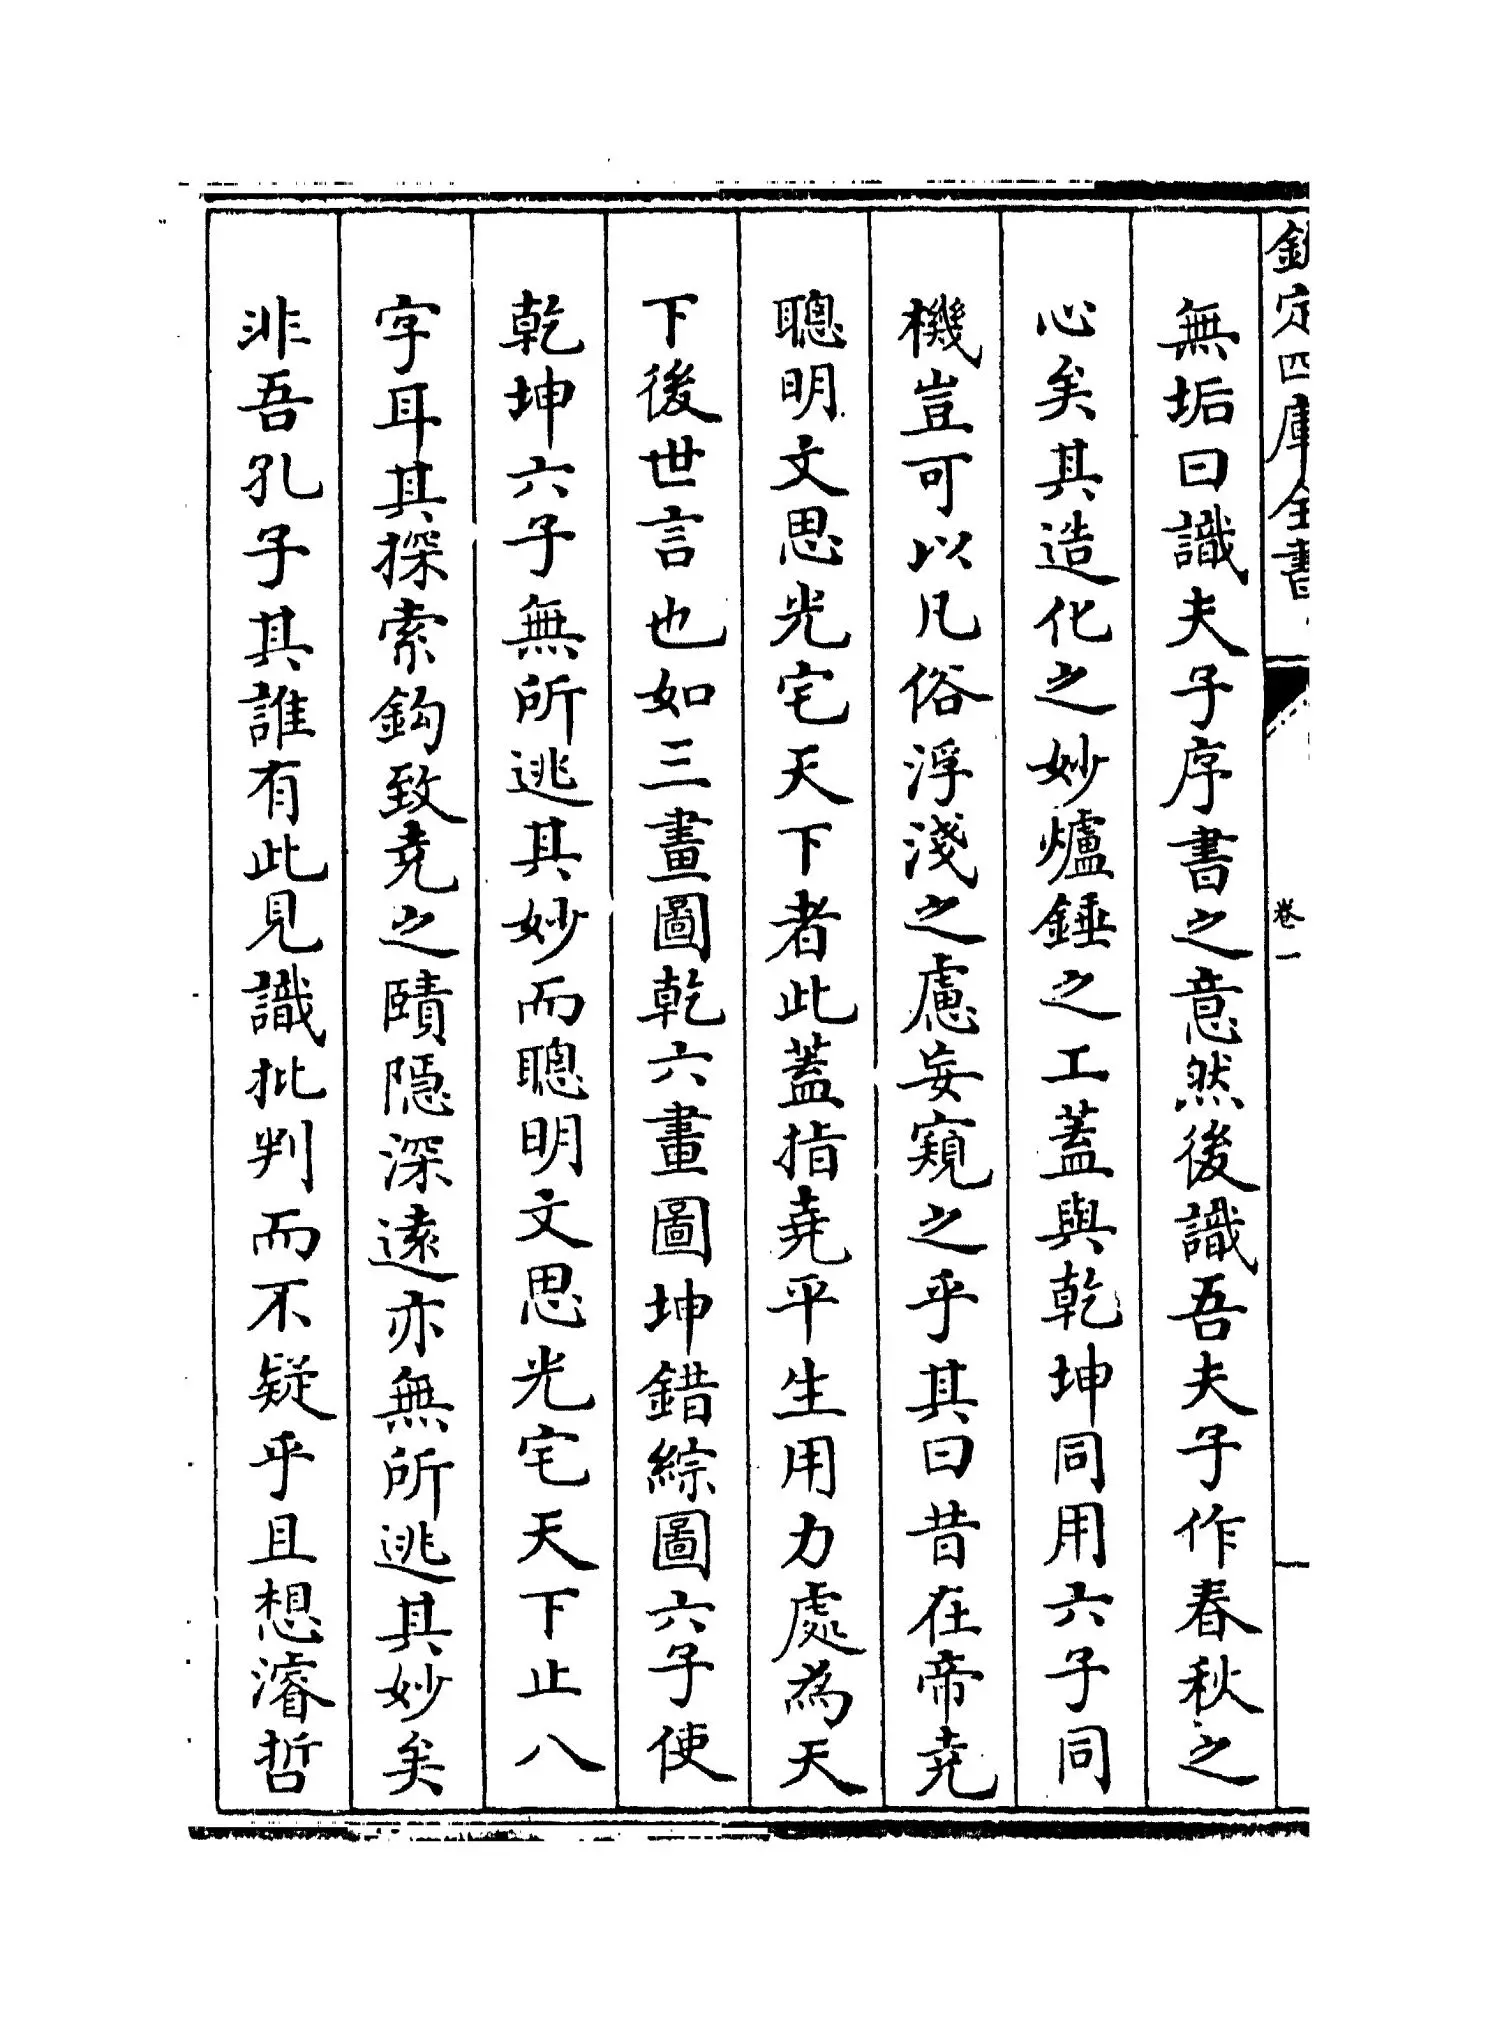 欽定四庫全書
卷一
無垢曰識夫子序書之意然後識吾夫子作春秋之
心矣其造化之妙爐錘之工蓋與乾坤同用六子同
機豈可以凡俗浮淺之慮妄窺之乎其曰昔在帝堯
聰明文思光宅天下者此蓋指堯平生用力處為天
下後世言也如三畫圖乾六畫圖坤錯綜圖六子使
乾坤六子無所逃其妙而聰明文思光宅天下止八
字耳其探索鈎致堯之賾隱深遠亦無所逃其妙矣
非吾孔子其誰有此見識批判而不疑乎且想濬哲